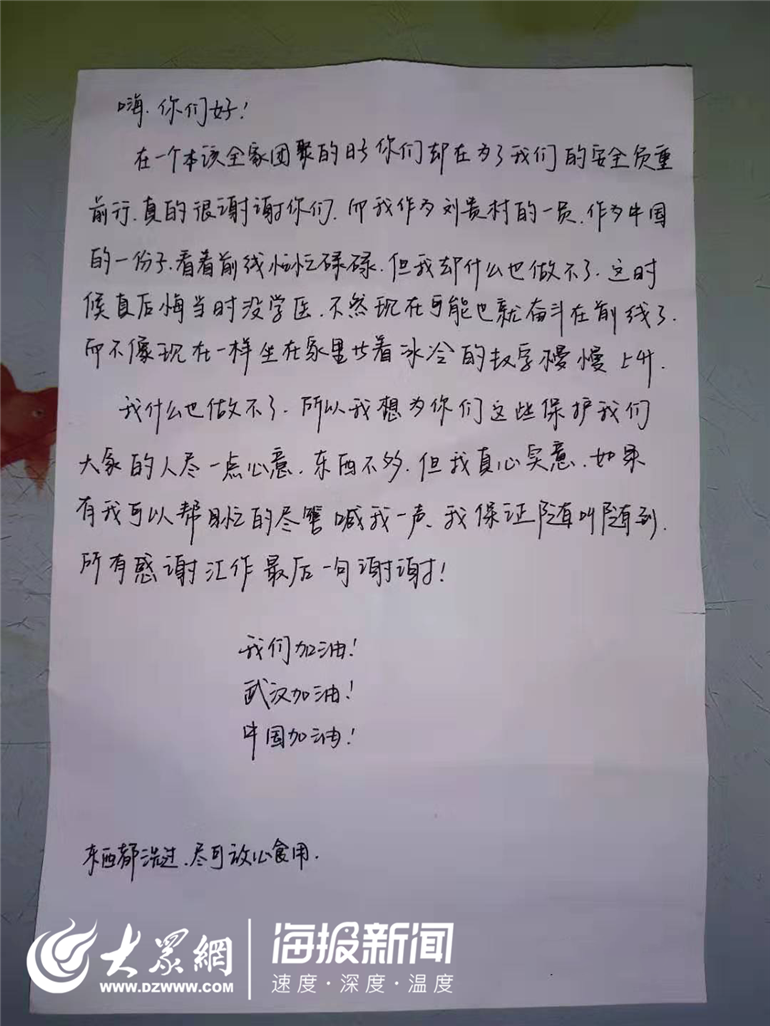 嗨.你们好!
在一个本该全家团聚的日子你们却在为了我们的安全负重
前行.真的很谢谢你们.而我作为刘贵村的一员.作为中国
的一份子.看着前线忙忙碌碌.但我却什么也做不了.这时
候真后悔当时没学医.不然现在可能也就奋斗在前线了.
而不像现在一样坐在家里看着冰冷的数字慢慢上升.
我什么也做不了.所以我想为你们这些保护我们
大家的人尽一点心意.东西不多.但我真心实意.如果
有我可以帮助忙的尽管喊我一声.我保证随叫随到.
所有感谢汇作最后一句谢谢!
我们加油!
武汉加油!
中国加油!
东西都洗过.尽可放心食用.
大众網
WWW.DZWWW.COM
海报新闻
速度·深度·温度